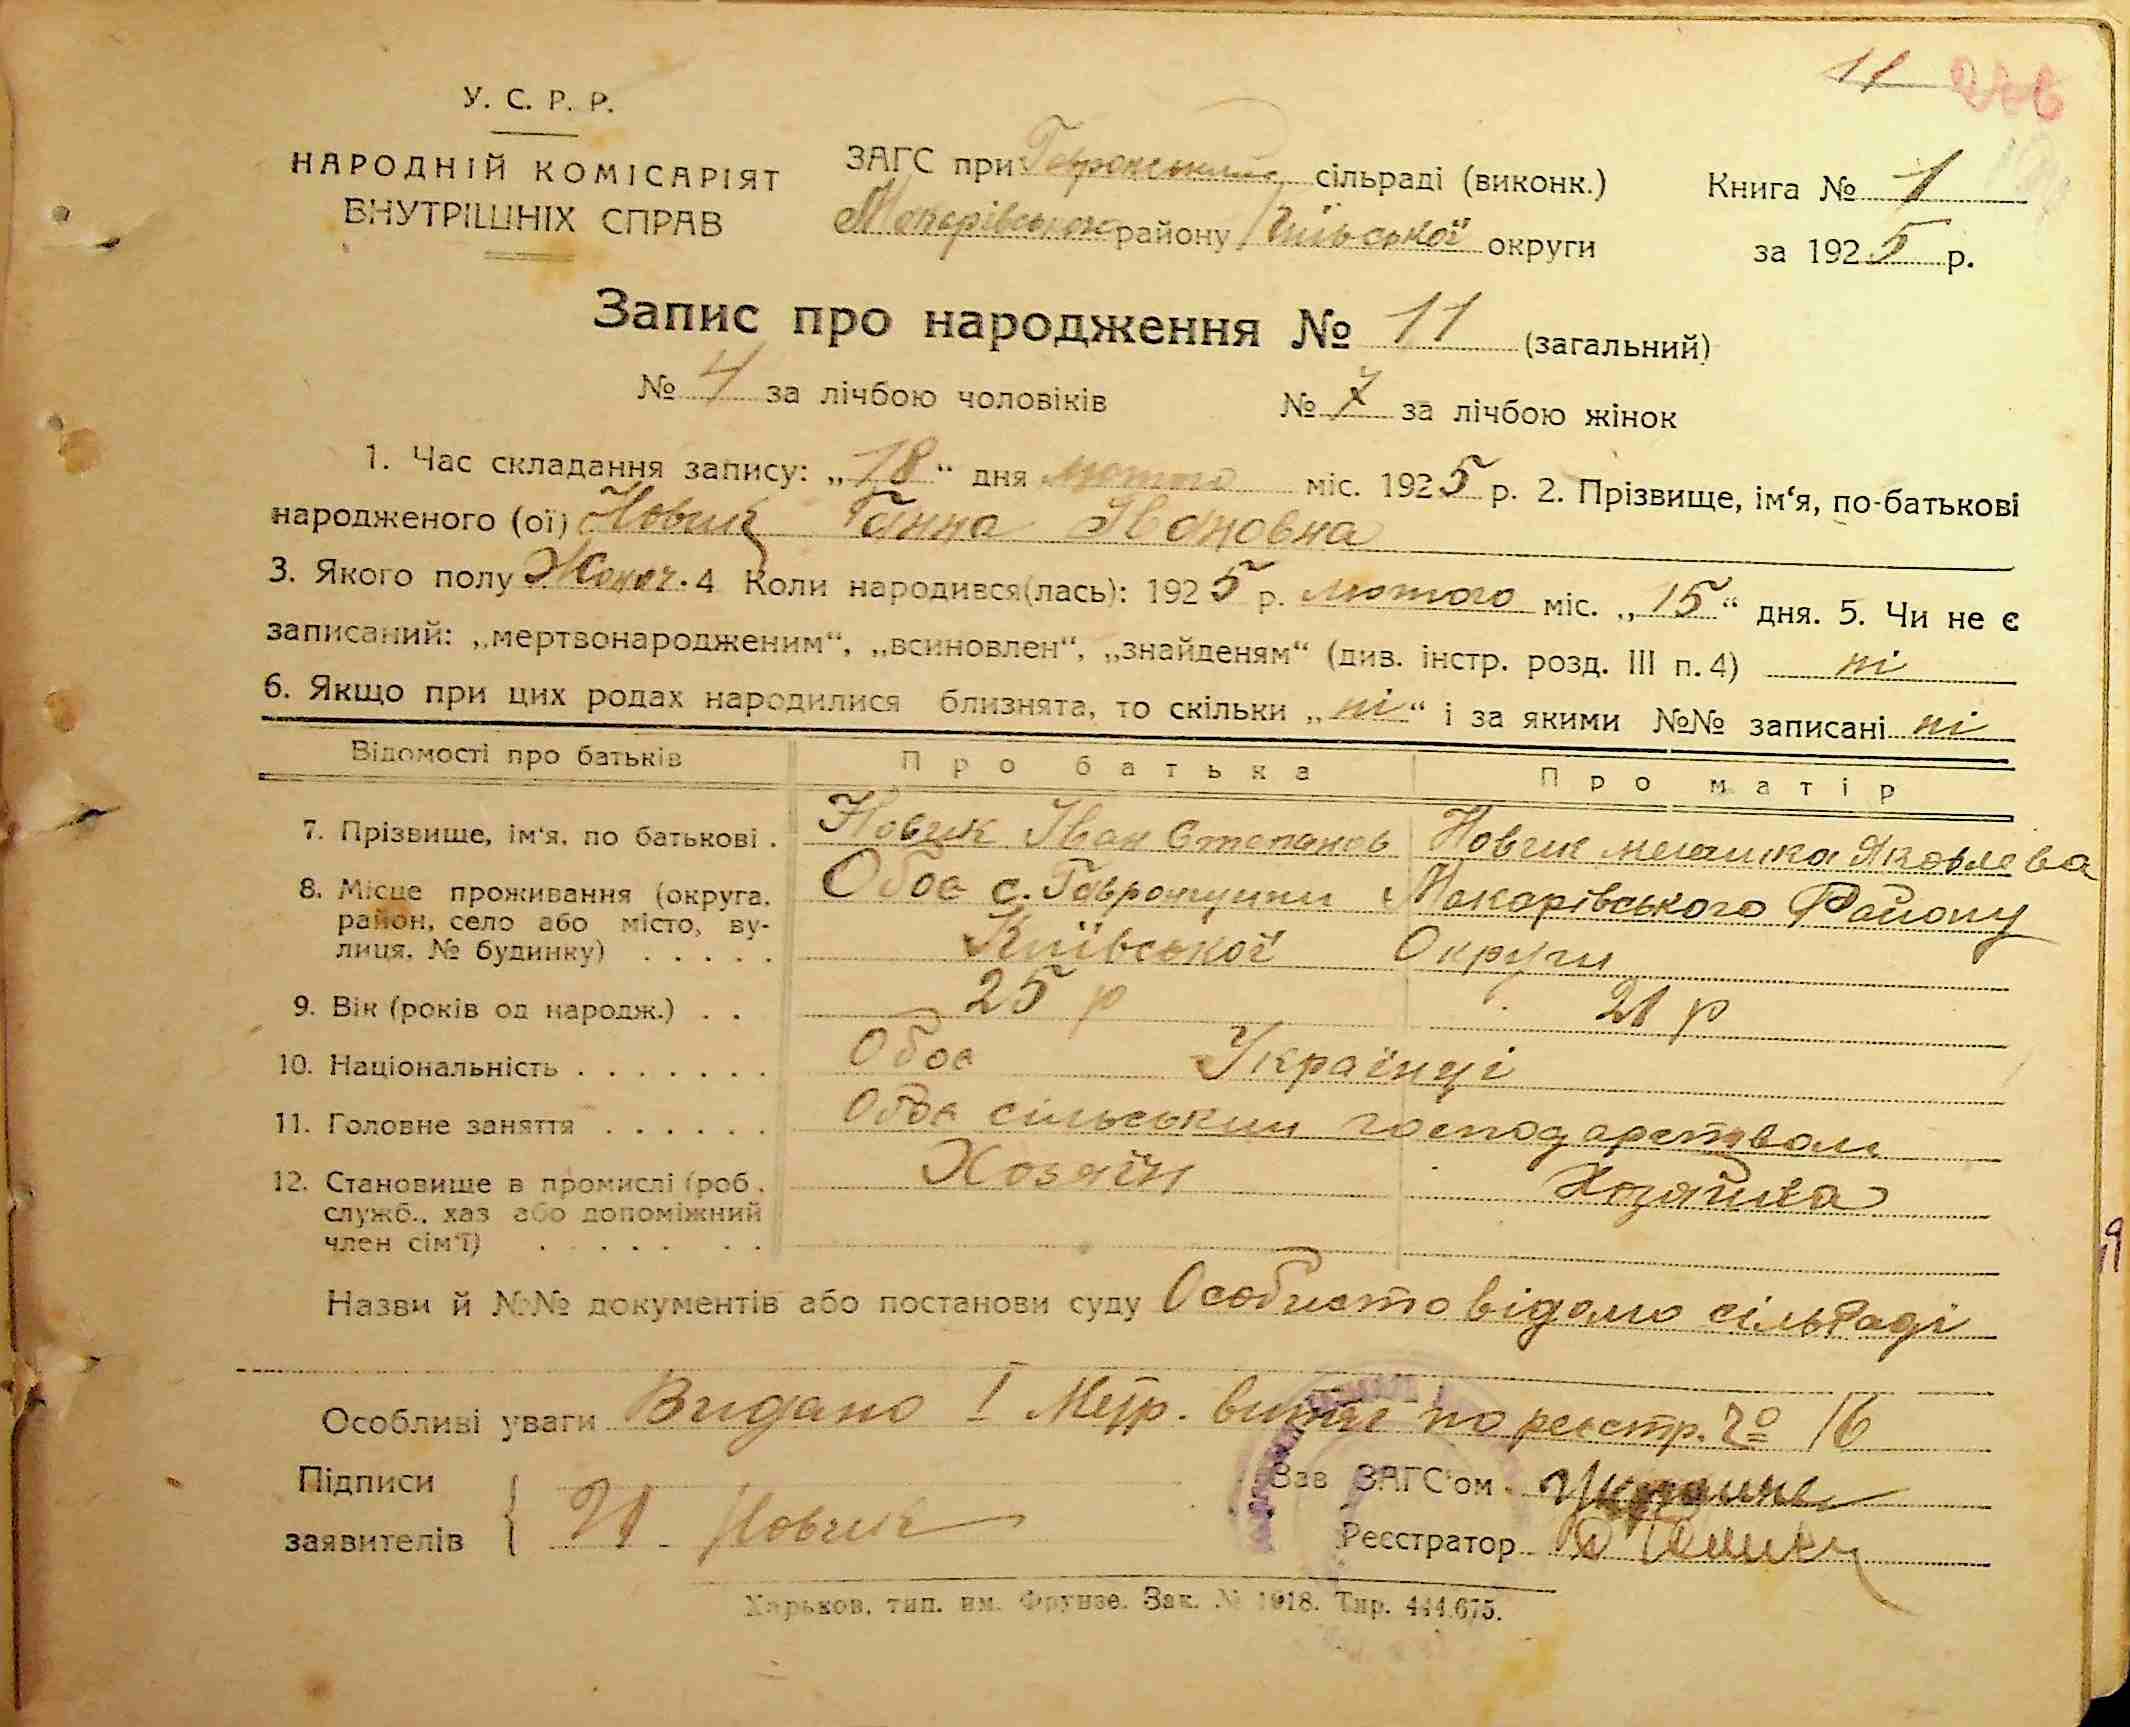 11
У. С. Р. Р.
НАРОДНІЙ КОМІСАРІЯТ
ВНУТРІШНІХ СПРАВ
ЗАГС при сільраді (виконк.)
району Київської округи
Книга № 1
за 1925 р.
Запис про народження № 11 (загальний)
№ 4 за лічбою чоловіків № 7 за лічбою жінок
1. Час складання запису: „18“ дня лютого міс. 1925 р. 2. Прізвище, ім‘я, по-батькові
народженого (ої) Новик Ганна Івановна
3. Якого полу Жоноч. 4 Коли народився(лась): 1925 р. лютого міс. „15“ дня. 5. Чи не є
записаний: „мертвонародженим“, „всиновлен“, „знайденям“ (див. інстр. розд. III п. 4) ні
6. Якщо при цих родах народилися близнята, то скільки „ні“ і за якими №№ записані ні
Відомості про батьків Про батька Про матір
7. Прізвище, ім‘я, по батькові . Новик Іван Степанов Новик Яковлева
8. Місце проживання (округа, Обоє с. Гавронщини Макарівського Району
район, село або місто, ву-
лиця, № будинку) . . . . . Київської Округи
9. Вік (років од народж.) . . 25 р 21 р
10. Національність . . . . . . . Обоє Українці
11. Головне заняття . . . . . . Обоє сільським господарством
12. Становище в промислі (роб., Хозяїн Хозяйка
служб., хаз або допоміжний
член сім‘ї) . . . . . . .
Назви й №№ документів або постанови суду Особисто відомо сільраді
Особливі уваги Видано І Метр. витяг по реєстр. № 16
Підписи
заявителів И. Новик
Зав ЗАГС‘ом
Реєстратор
Харьков, тип. им. Фрунзе. Зак. № 1918. Тир. 444.675.